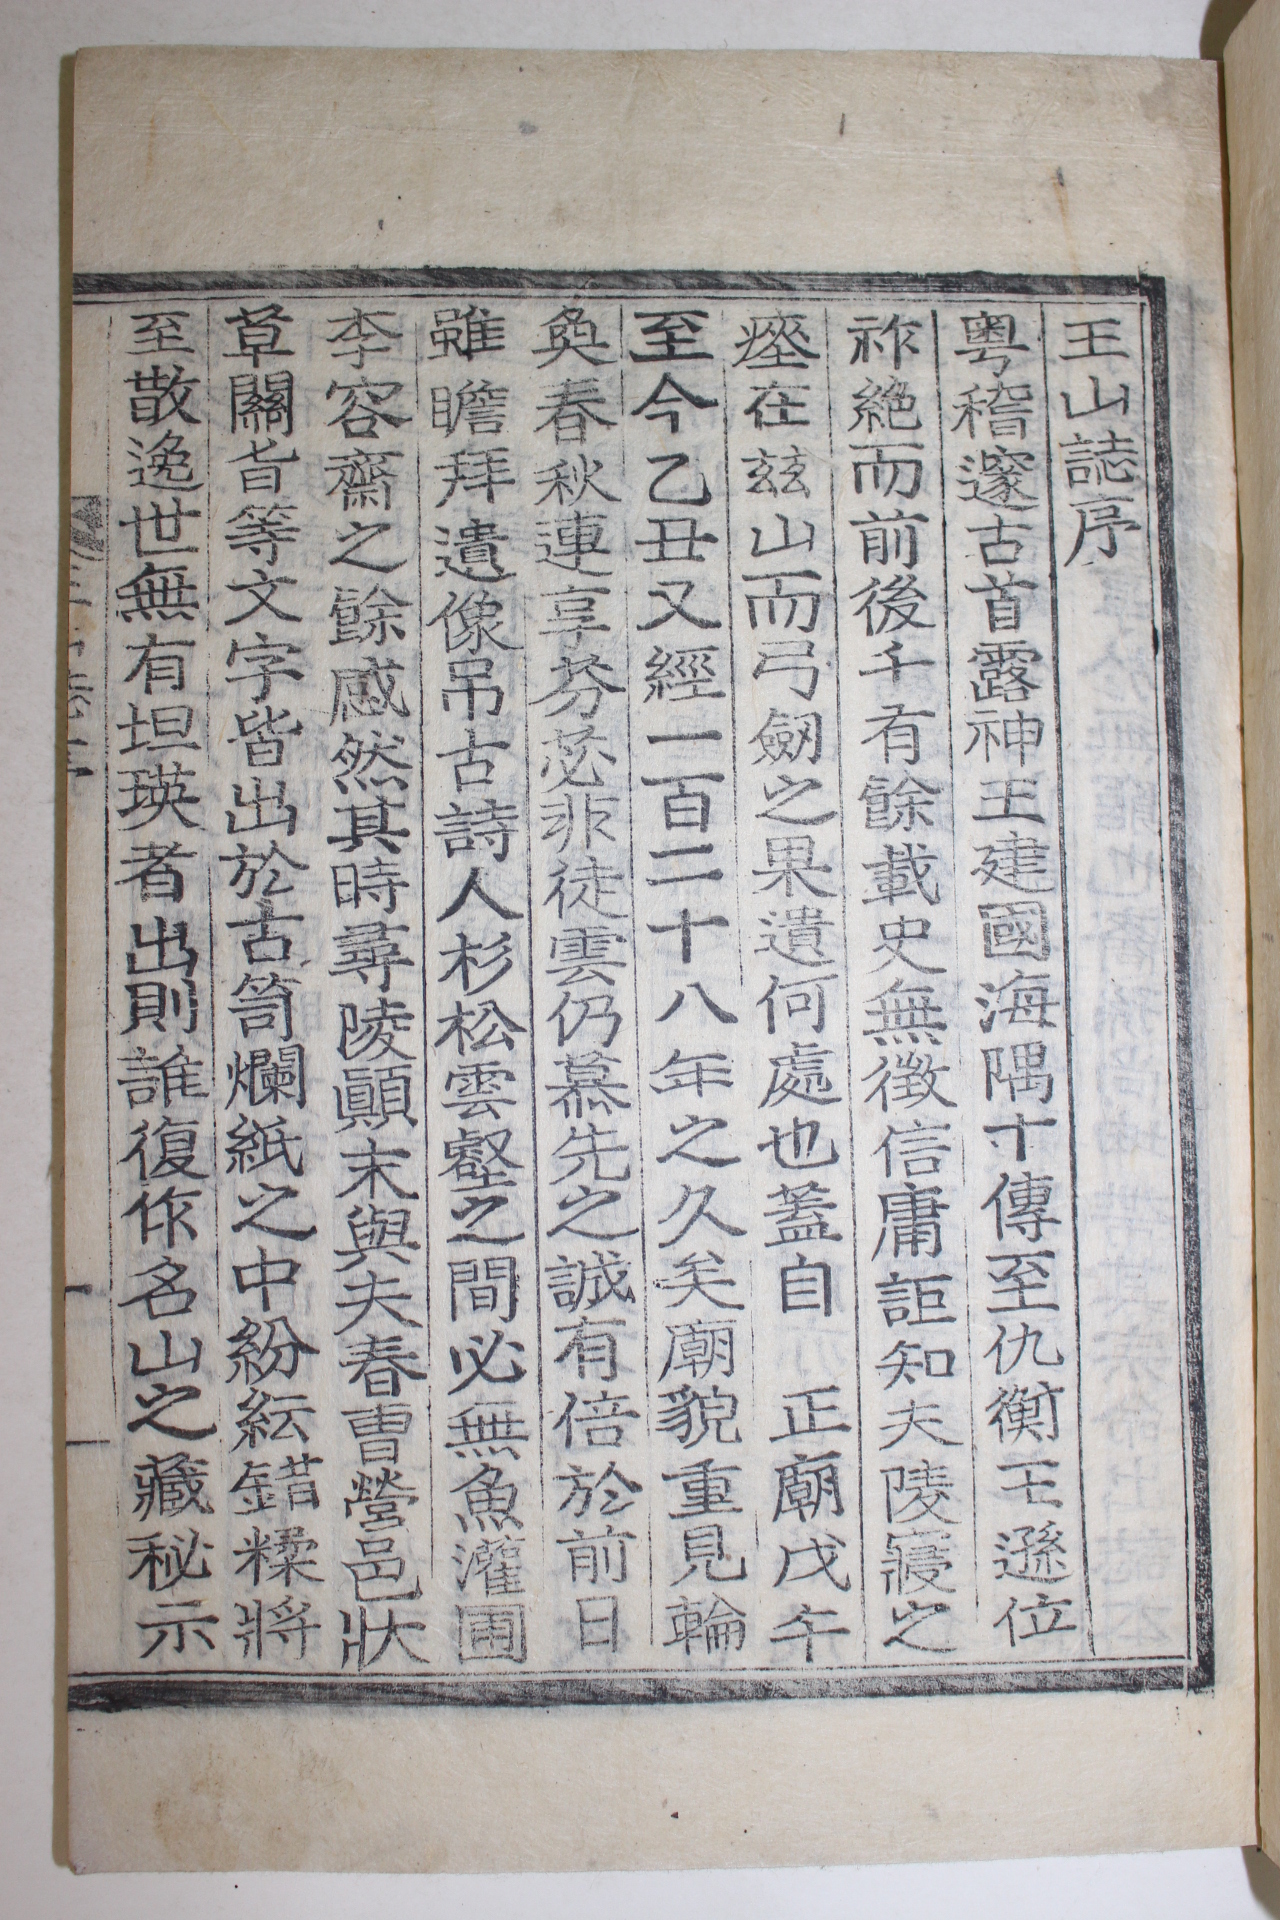 王山誌序
粤稽邃古首露神王建國海隅十傳至仇衡王遜位
祚絶而前後千有餘載史無徴信庸詎知夫陵寢之
瘞在玆山而弓劒之果遺何處也蓋自 正廟戊午
至今乙丑又經一百二十八年之久矣廟貌重見輪
奐春秋連享芬苾非徒雲仍慕先之誠有倍於前日
雖瞻拜遺像吊古詩人杉松雲壑之間必無魚灌圃
李容齋之餘感然其時尋陵顚末與夫春曺營邑狀
草關旨等文字皆出於古笥爛紙之中紛紜錯糅將
至散逸世無有坦瑛者出則誰復作名山之藏秘示